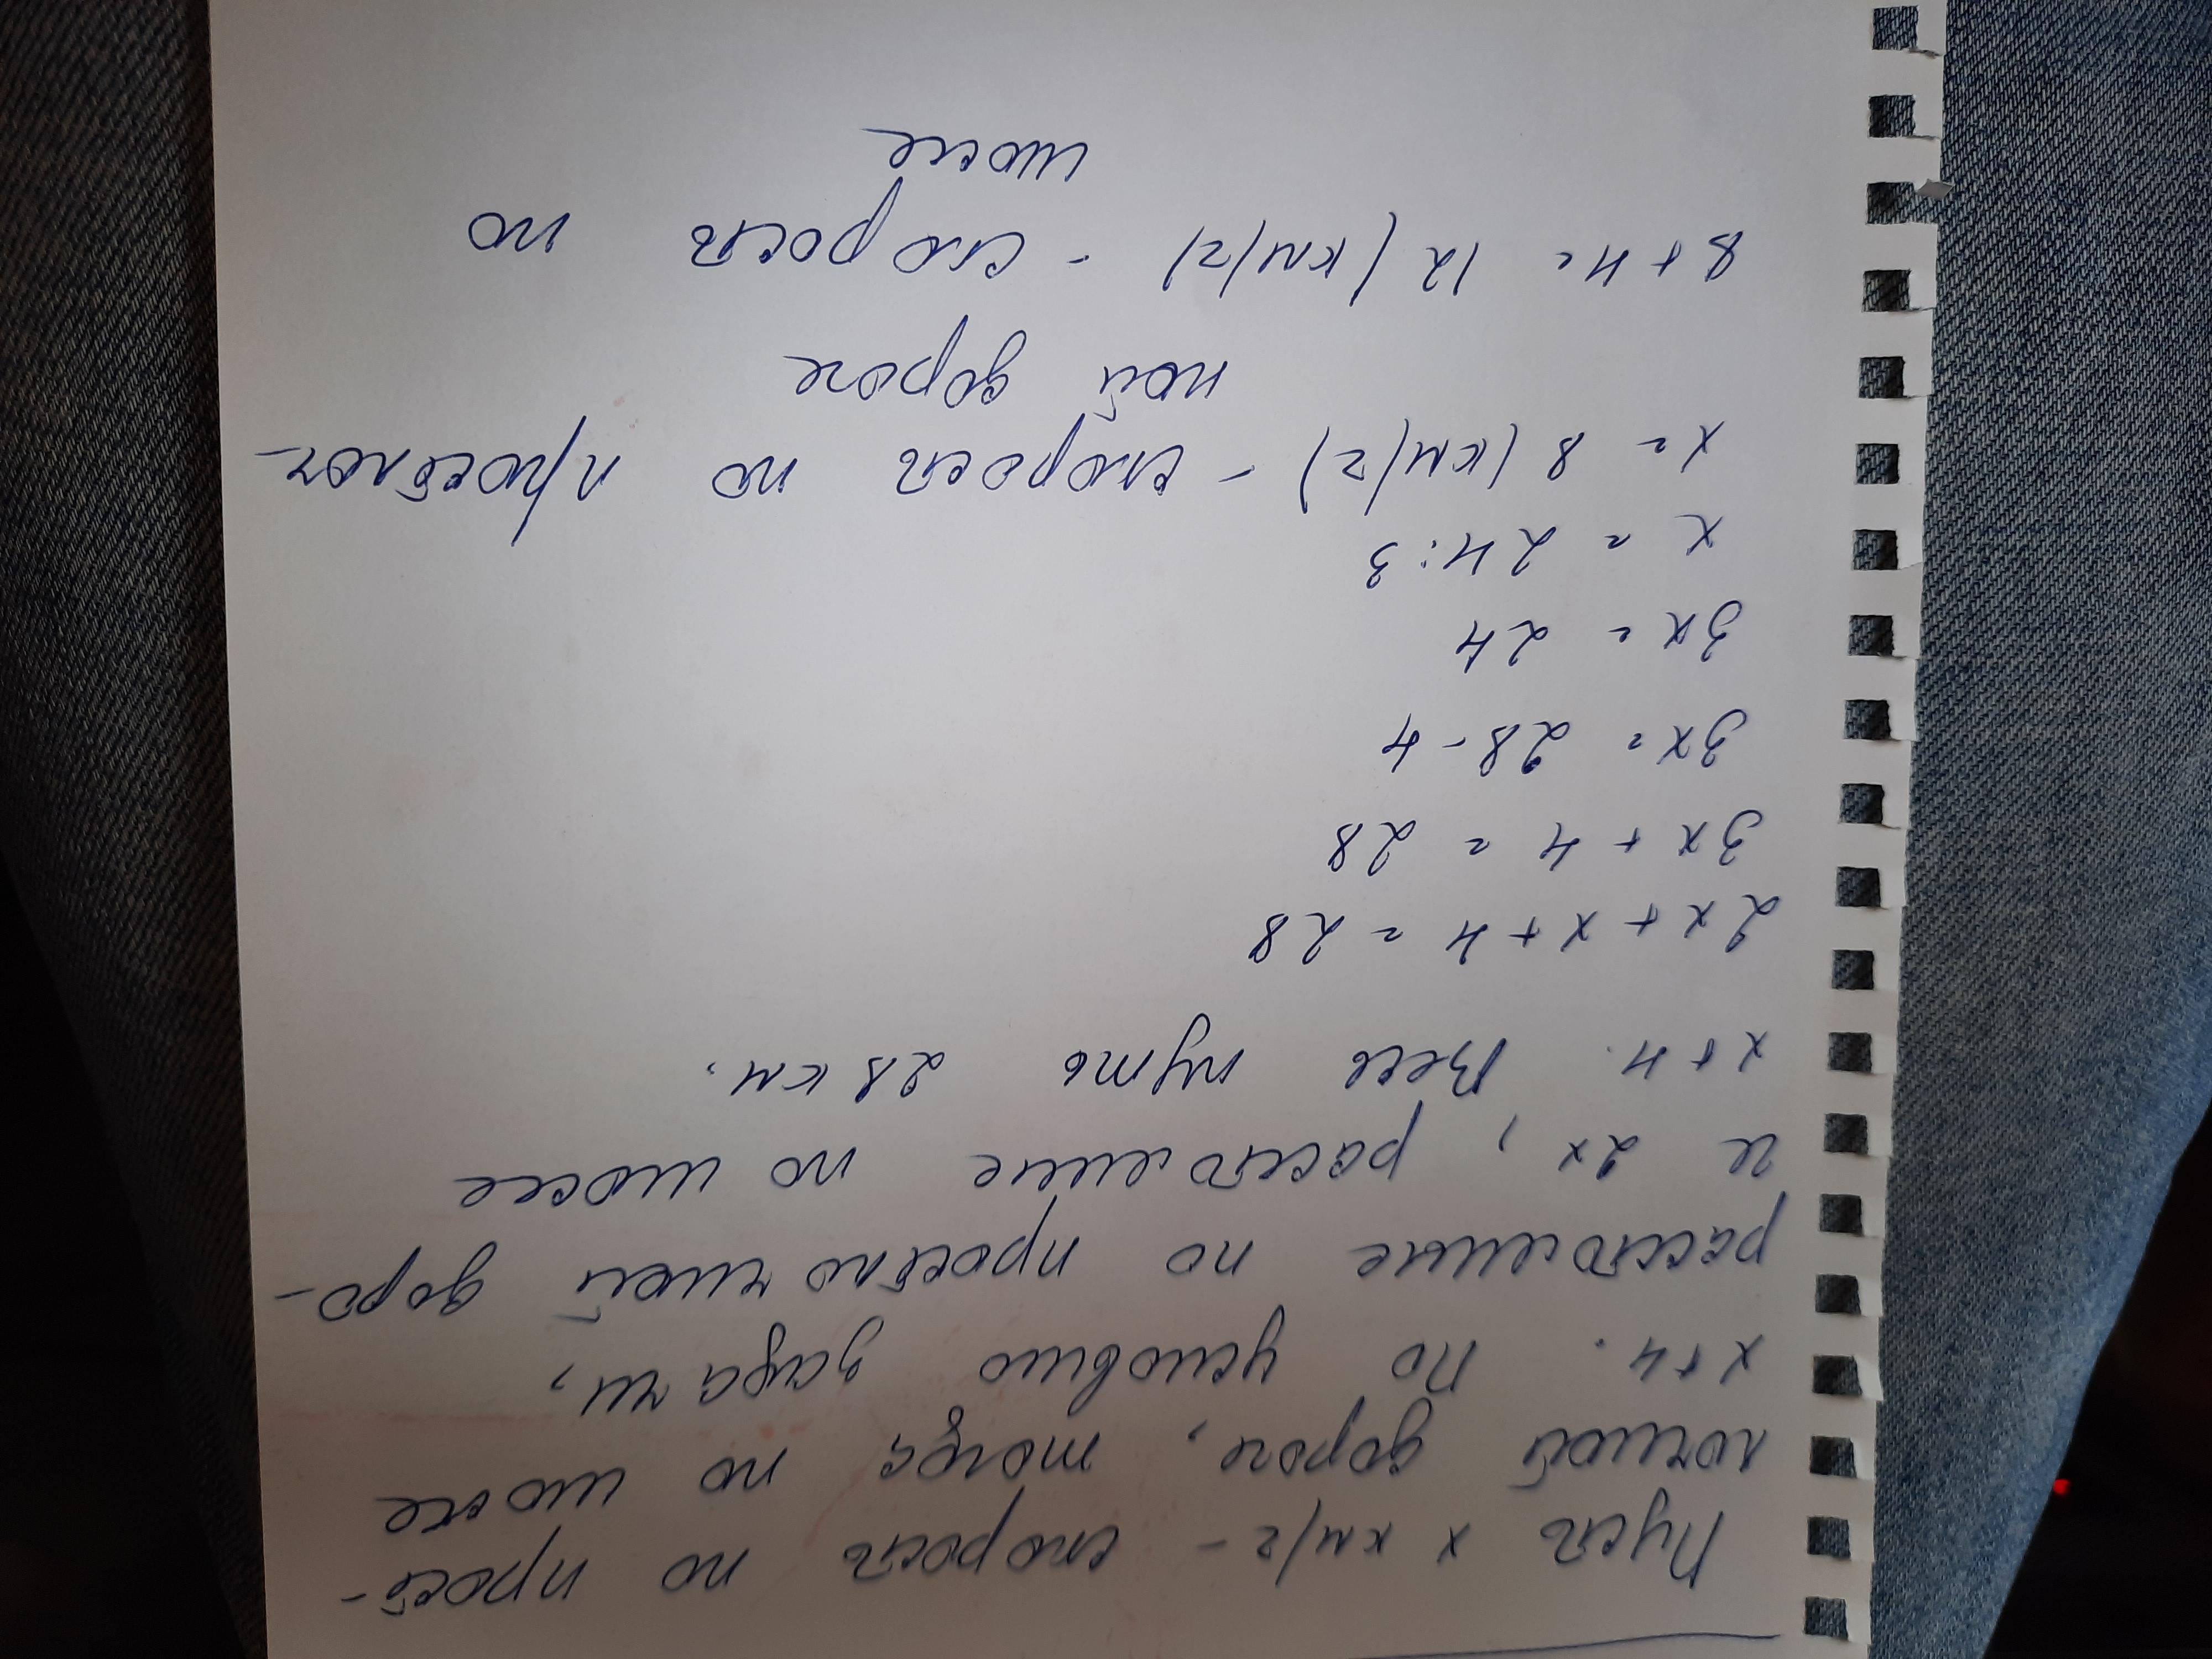 Пусть x км/ч - скорость по просё-
лочной дороге, тогда по шоссе
x+4. По условию задачи,
расстояние по просёлочной доро-
ге 2x, расстояние по шоссе
x+4. Весь путь 28 км.
2x + x + 4 = 28
3x + 4 = 28
3x = 28-4
3x = 24
x = 24:3
x = 8 (км/ч) - скорость по просёлоч-
ной дороге
8+4= 12 (км/ч) - скорость по
шоссе